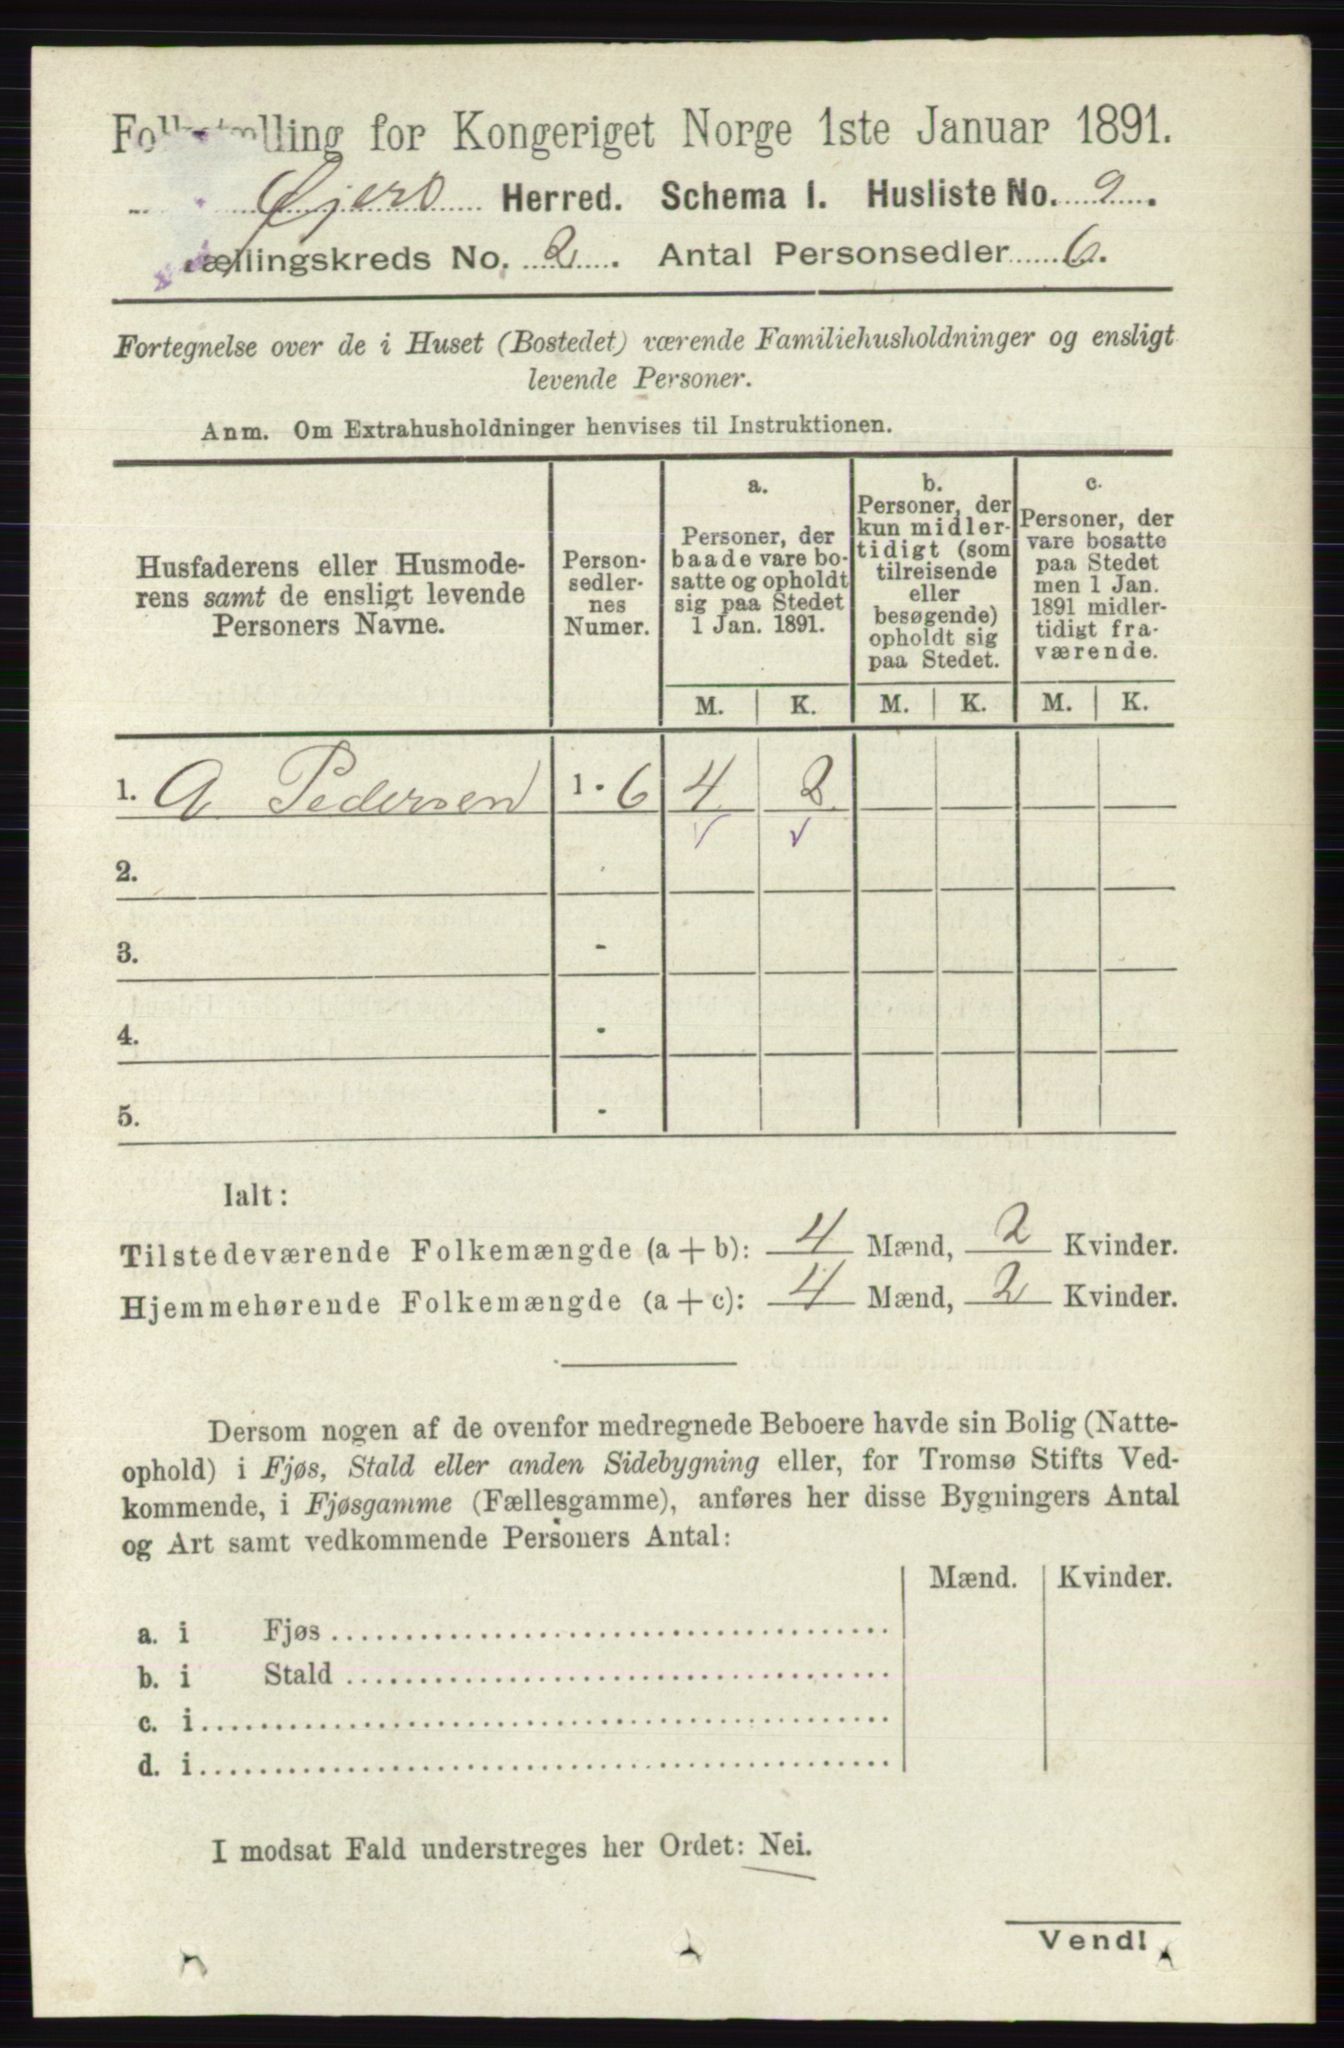 Folketælling for Kongeriget Norge 1ste Januar 1891.
Øjerø Herred. Schema I. Husliste No. 2.
Tællingskreds No. 2. Antal Personsedler 6.
Fortegnelse over de i Huset (Bostedet) værende Familiehusholdninger og ensligt
levende Personer.
Anm. Om Extrahusholdninger henvises til Instruktionen.
Husfaderens eller Husmode-
rens samt de ensligt levende
Personers Navne.
Person-
sedler-
nes
Numer.
a.
Personer, der
baade vare bo-
satte og opholdt
sig paa Stedet
1 Jan. 1891.
b.
Personer, der
kun midler-
tidigt (som
tilreisende
eller
besøgende)
opholdt sig
paa Stedet.
c.
Personer, der
vare bosatte
paa Stedet
men 1 Jan.
1891 midler-
tidigt fra-
værende.
M. K. M. K. M. K.
1. A. Pedersen 1 - 6 4 2
2.
3. -
4. -
5. -
Ialt:
Tilstedeværende Folkemængde (a + b): 4 Mænd, 2 Kvinder.
Hjemmehørende Folkemængde (a + c): 4 Mænd, 2 Kvinder.
Dersom nogen af de ovenfor medregnede Beboere havde sin Bolig (Natte-
ophold) i Fjøs, Stald eller anden Sidebygning eller, for Tromsø Stifts Ved-
kommende, i Fjøsgamme (Fællesgamme), anføres her disse Bygningers Antal
og Art samt vedkommende Personers Antal:
Mænd. Kvinder.
a. i Fjøs
b. i Stald
c. i
d. i
I modsat Fald understreges her Ordet: Nei.
Vend!